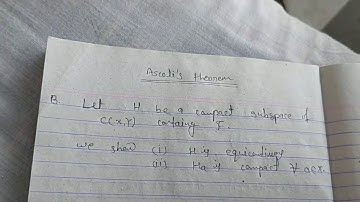 Ascoli's theorem
B. Let H be a compact subspace of
C(X,Y) containg F.
we show (i) H is equicontinuous
(ii) Ha is compact ∀ a∈X.